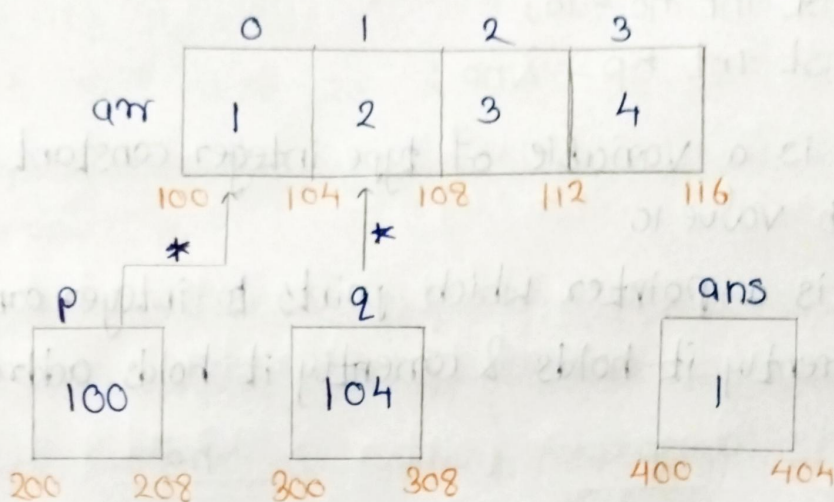 0 1 2 3
arr 1 2 3 4
100 104 108 112 116
* *
p q ans
100 104 1
200 208 300 308 400 404